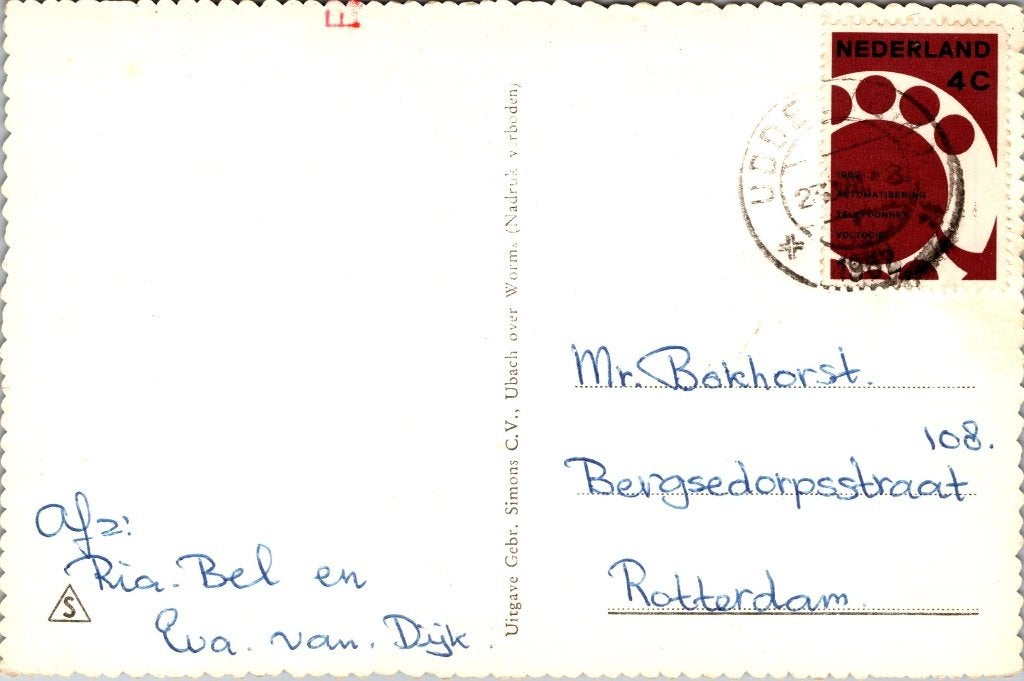 NEDERLAND
4C
1962
AUTOMATISERING
TELEFOONNET
VOLTOOID
UDDE
1962
Mr. Bokhorst.
108.
Bergsedorpsstraat
Rotterdam.
Afz:
Ria. Bel en
Eva. van. Dijk.
S
Uitgave Gebr. Simons C.V., Ubach over Worms (Nadruk verboden)